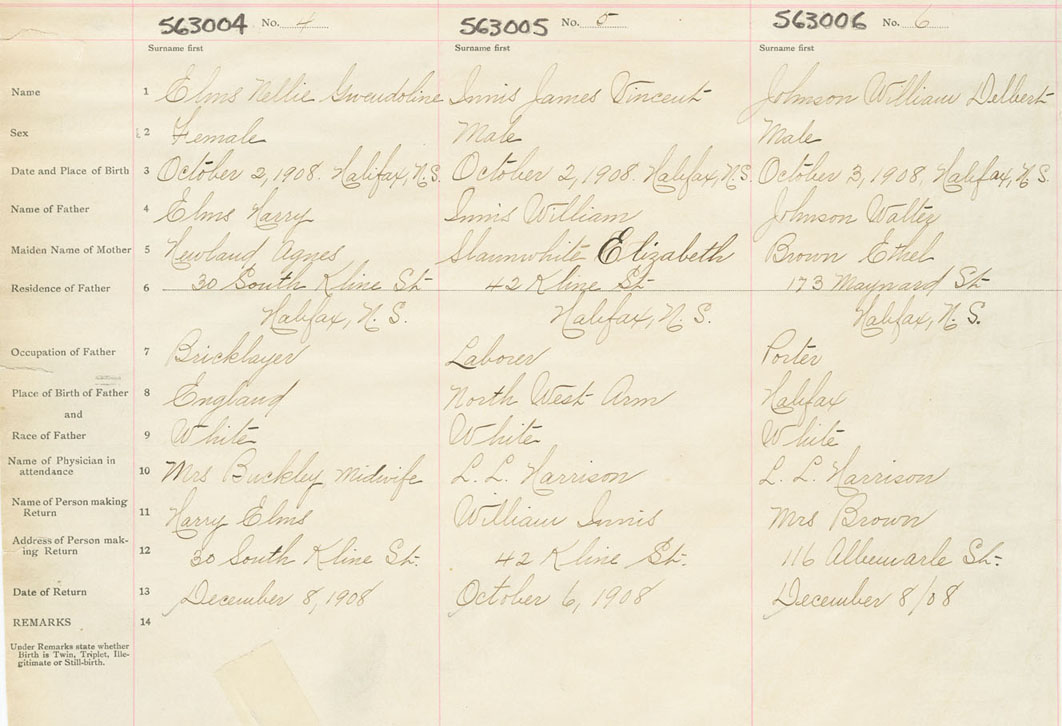 563004 No. 4 563005 No. 5 563006 No. 6
Surname first Surname first Surname first
Name 1 Elms Nellie Gwendoline Innis James Vincent Johnson William Delbert
Sex 2 Female Male Male
Date and Place of Birth 3 October 2, 1908. Halifax, N.S. October 2, 1908. Halifax, N.S. October 3, 1908, Halifax, N.S.
Name of Father 4 Elms Harry Innis William Johnson Walter
Maiden Name of Mother 5 Newland Agnes Slaunwhite Elizabeth Brown Ethel
Residence of Father 6 30 South Kline St 42 Kline St 173 Maynard St
Halifax, N.S. Halifax, N.S. Halifax, N.S.
Occupation of Father 7 Bricklayer Laborer Porter
Place of Birth of Father 8 England North West Arm Halifax
and
Race of Father 9 White White White
Name of Physician in
attendance 10 Mrs Buckley Midwife L. L. Harrison L. L. Harrison
Name of Person making
Return 11 Harry Elms William Innis Mrs Brown
Address of Person mak-
ing Return 12 30 South Kline St. 42 Kline St. 116 Albemarle St.
Date of Return 13 December 8, 1908 October 6, 1908 December 8/08
REMARKS 14
Under Remarks state whether
Birth is Twin, Triplet, Ille-
gitimate or Still-birth.